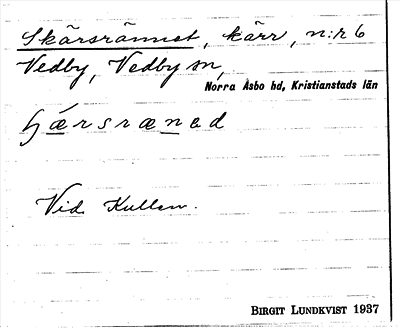 Skärsrännet, kärr, n:r 6
Vedby, Vedby sn,
Norra Åsbo hd, Kristianstads län
ʃærsrænəd
Vid Kullen.
BIRGIT LUNDKVIST 1937